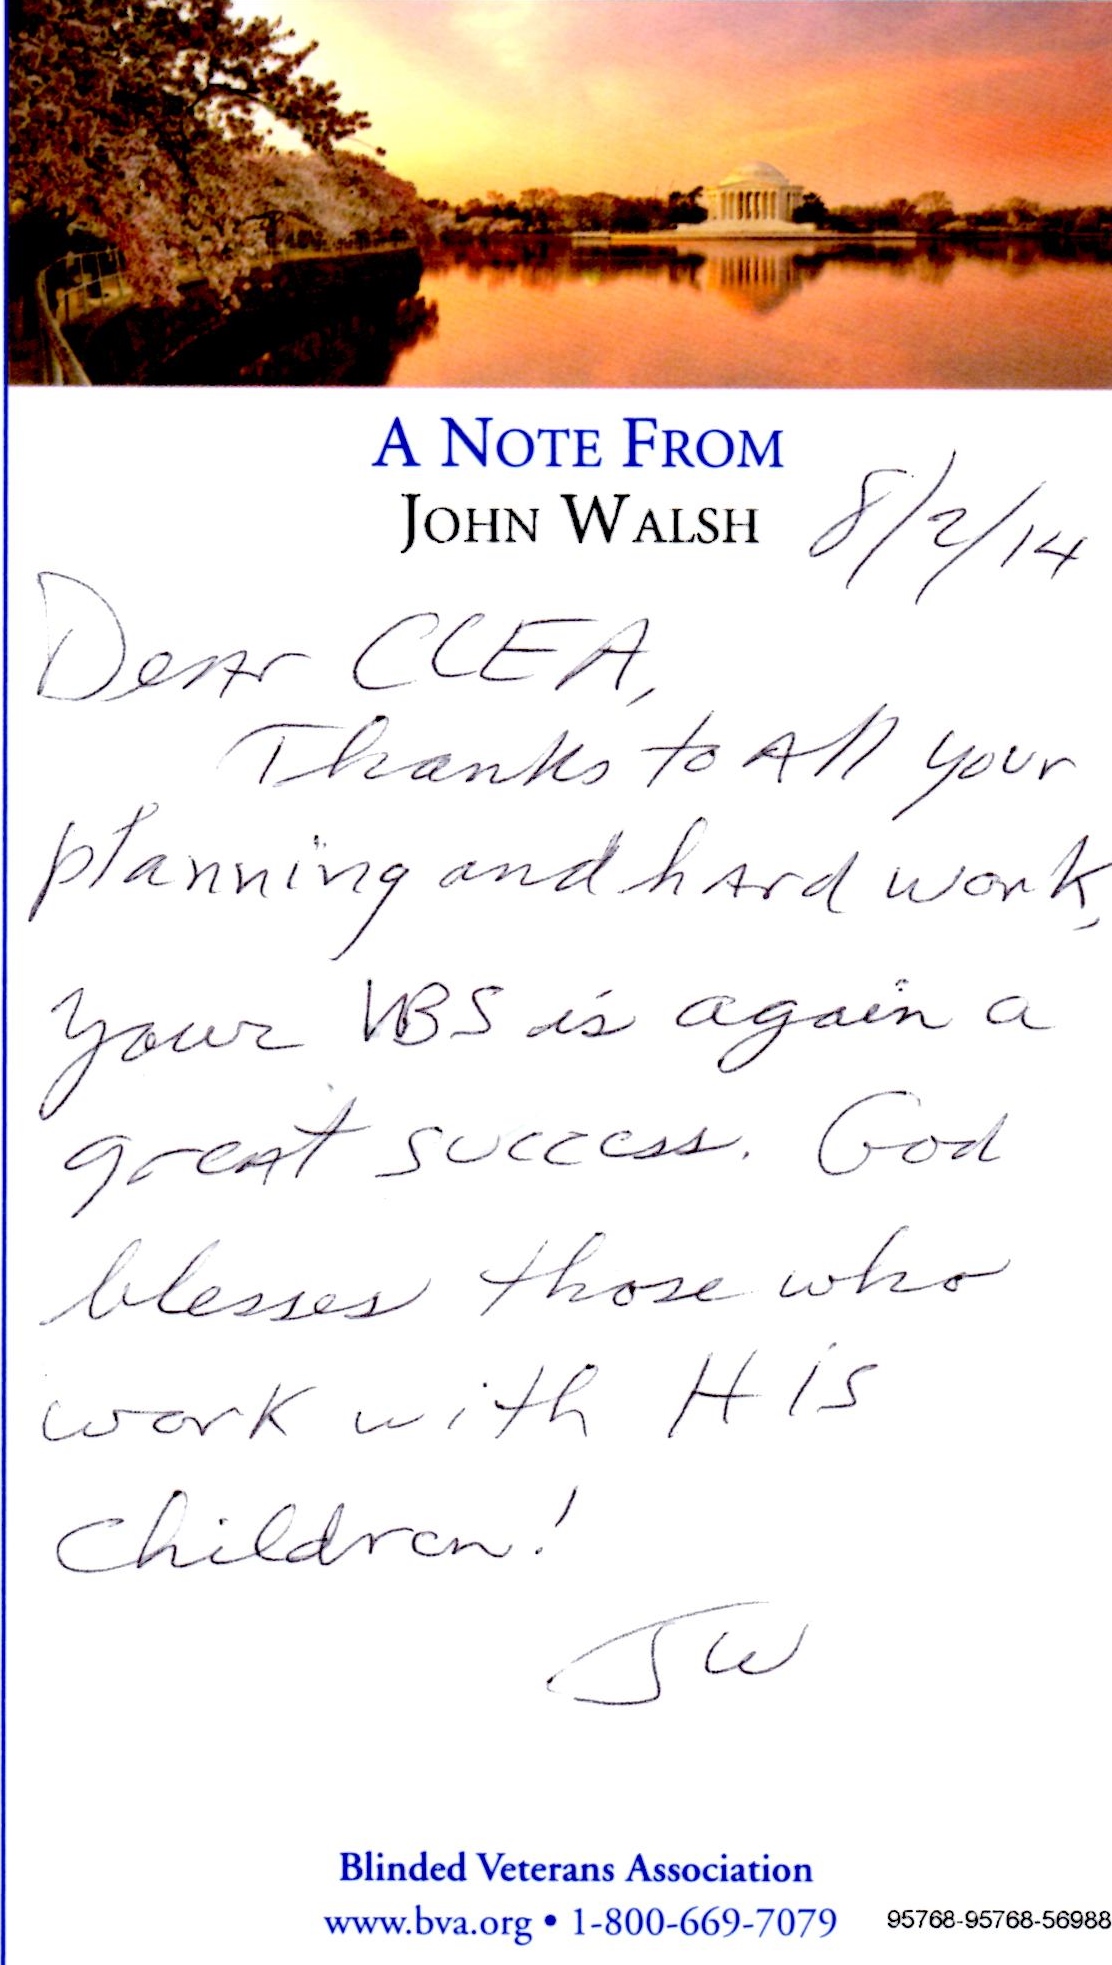 A NOTE FROM
JOHN WALSH
8/2/14
Dear CCEA,
Thanks to All your
planning and hard work,
your VBS is again a
great success. God
blesses those who
work with His
children!
JW
Blinded Veterans Association
www.bva.org • 1-800-669-7079
95768-95768-56988